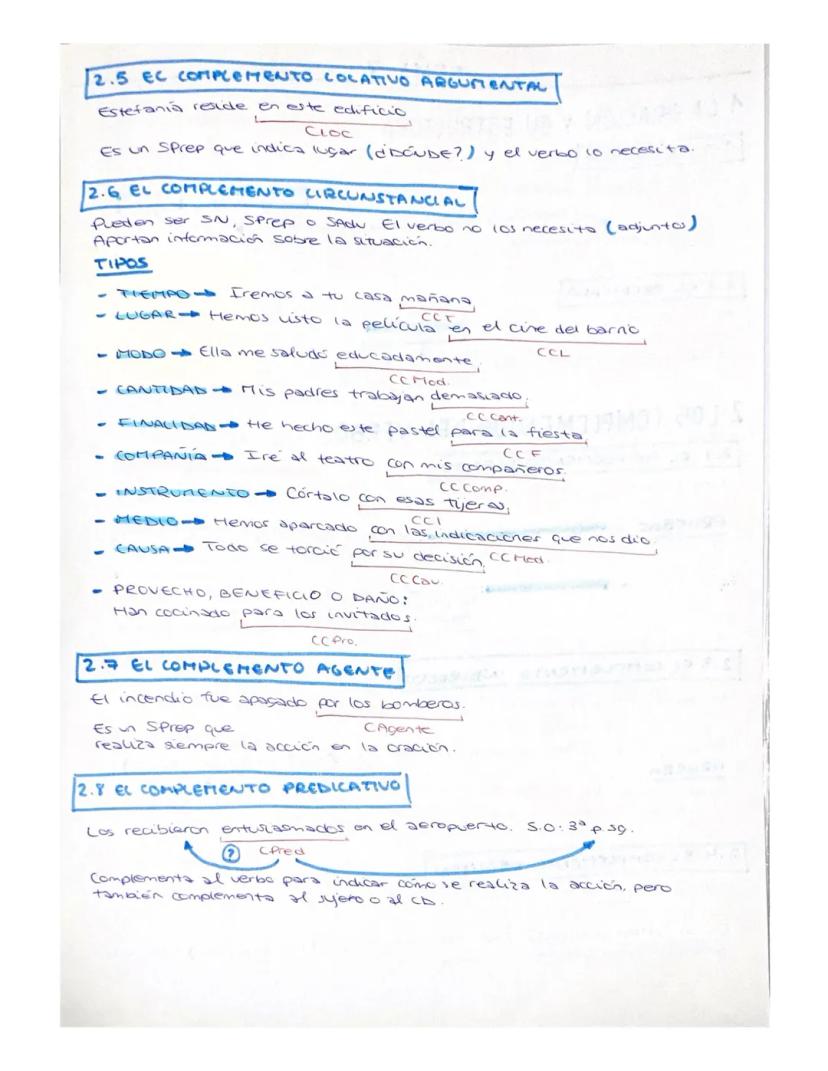 2.5 EL COMPLEMENTO LOCATIVO ARGUMENTAL
Estefanía reside en este edificio
CLOC
Es un SPrep que indica lugar (¿DÓNDE?) y el verbo lo necesita.
2.6 EL COMPLEMENTO CIRCUNSTANCIAL
Pueden ser SN, SPrep o SAdv. El verbo no los necesita (adjuntos)
Aportan información sobre la situación.
TIPOS
- TIEMPO → Iremos a tu casa mañana
CCT
- LUGAR → Hemos visto la película en el cine del barrio
CCL
- MODO → Ella me saludó educadamente.
CC Mod.
- CANTIDAD → Mis padres trabajan demasiado.
CC Cant.
- FINALIDAD → He hecho este pastel para la fiesta
CCF
- COMPAÑÍA → Iré al teatro con mis compañeros.
CC Comp.
- INSTRUMENTO → Córtalo con esas tijeras
CCI
- MEDIO → Hemos aparcado con las indicaciones que nos dio.
CC Med.
- CAUSA → Todo se torció por su decisión
CC Cau.
- PROVECHO, BENEFICIO O DAÑO:
Han cocinado para los invitados.
CC Pro.
2.7 EL COMPLEMENTO AGENTE
El incendio fue apagado por los bomberos.
CAgente
Es un SPrep que
realiza siempre la acción en la oración.
2.8 EL COMPLEMENTO PREDICATIVO
Los recibieron entusiasmados en el aeropuerto. S.O: 3ª p.sg.
? CPred
Complementa al verbo para indicar cómo se realiza la acción, pero
también complementa al sujeto o al CD.